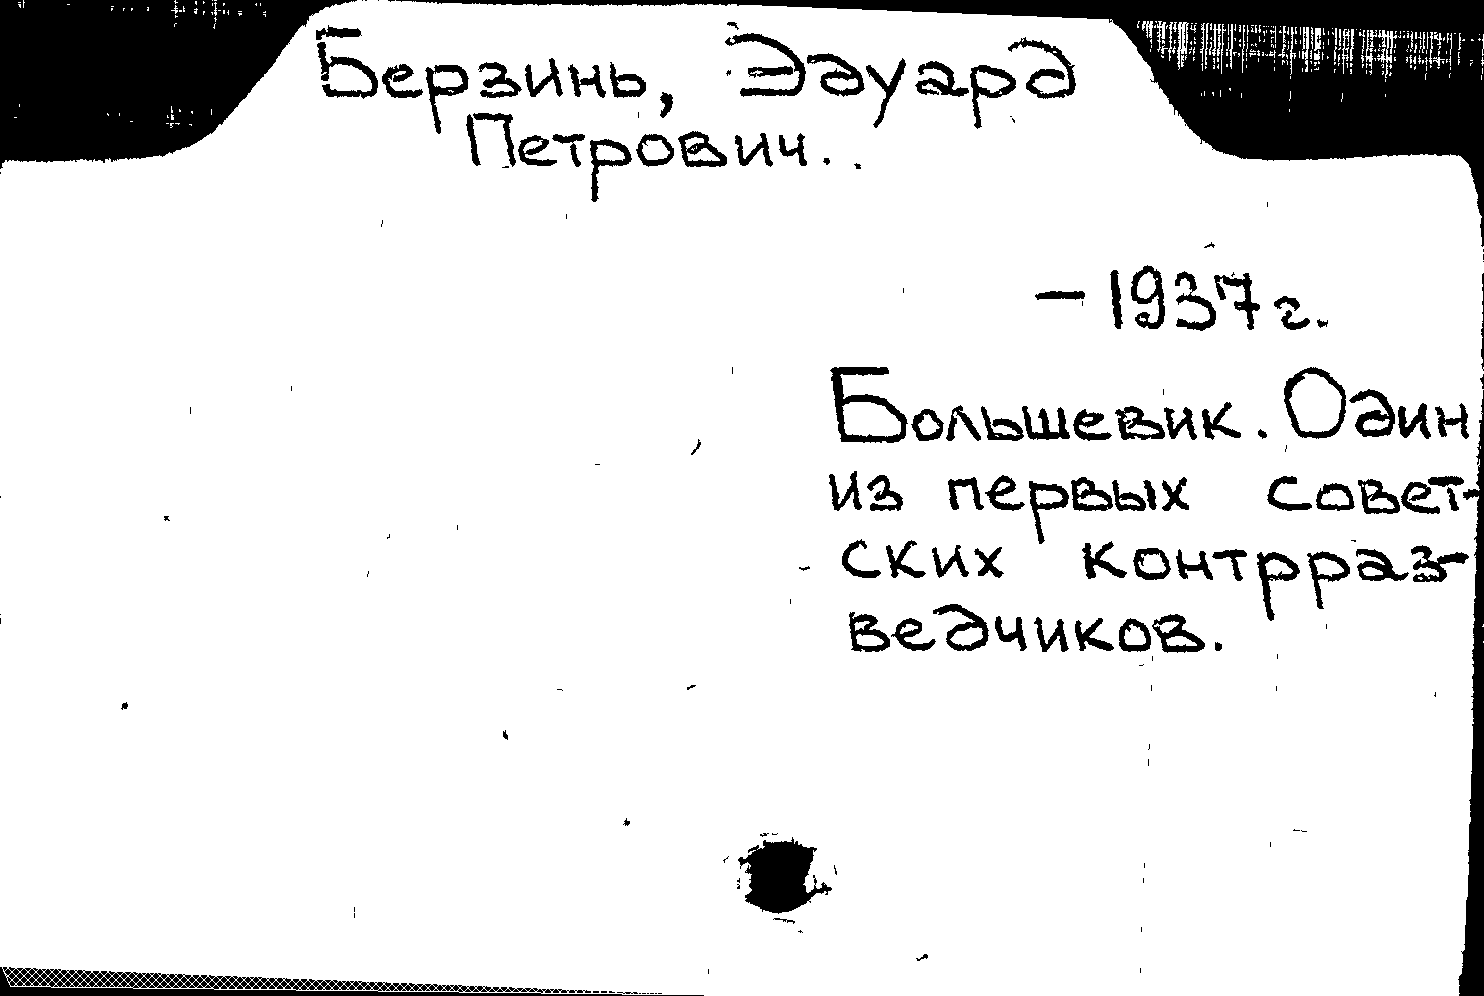 Берзинь, Эдуард
Петрович..
– 1937 г.
Большевик. Один
из первых совет-
ских контрраз-
ведчиков.